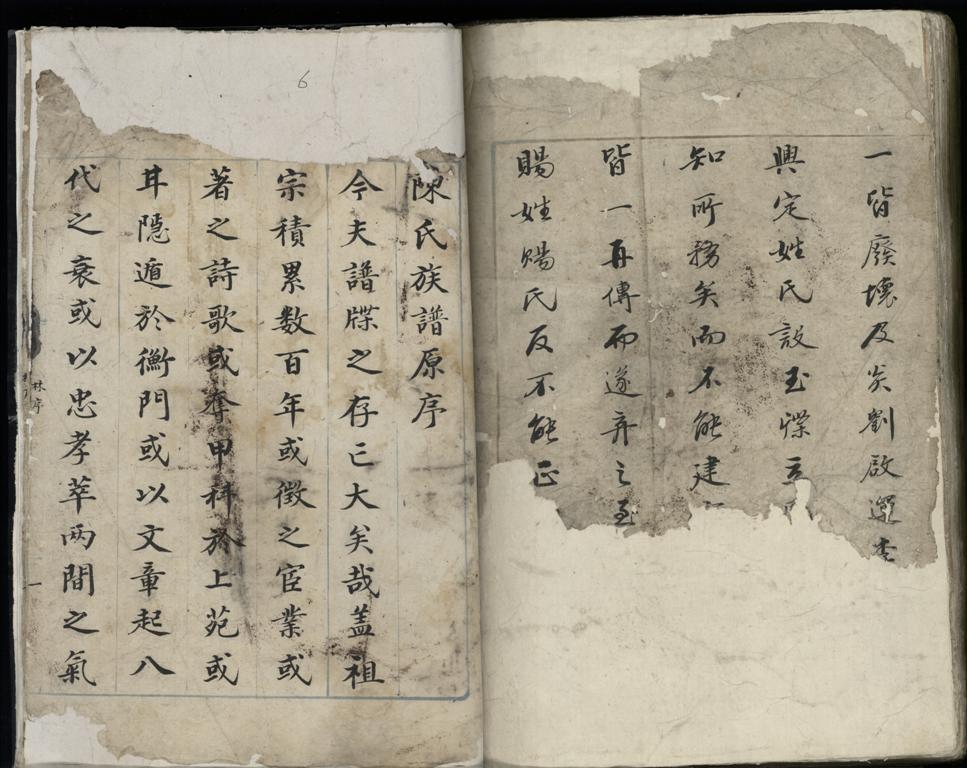 一皆廢壞及炎劉啟運
興定姓氏設玉牒
知所務矣而不能建
皆一再傳而遂弃之至
賜姓賜氏反不能正
陳氏族譜原序
今夫譜牒之存亡大矣哉盖祖
宗積累数百年或徴之宦業或
著之詩歌或奪甲科於上苑或
耳隠遁於衡門或以文章起八
代之衰或以忠孝萃两間之氣
林序
一
6